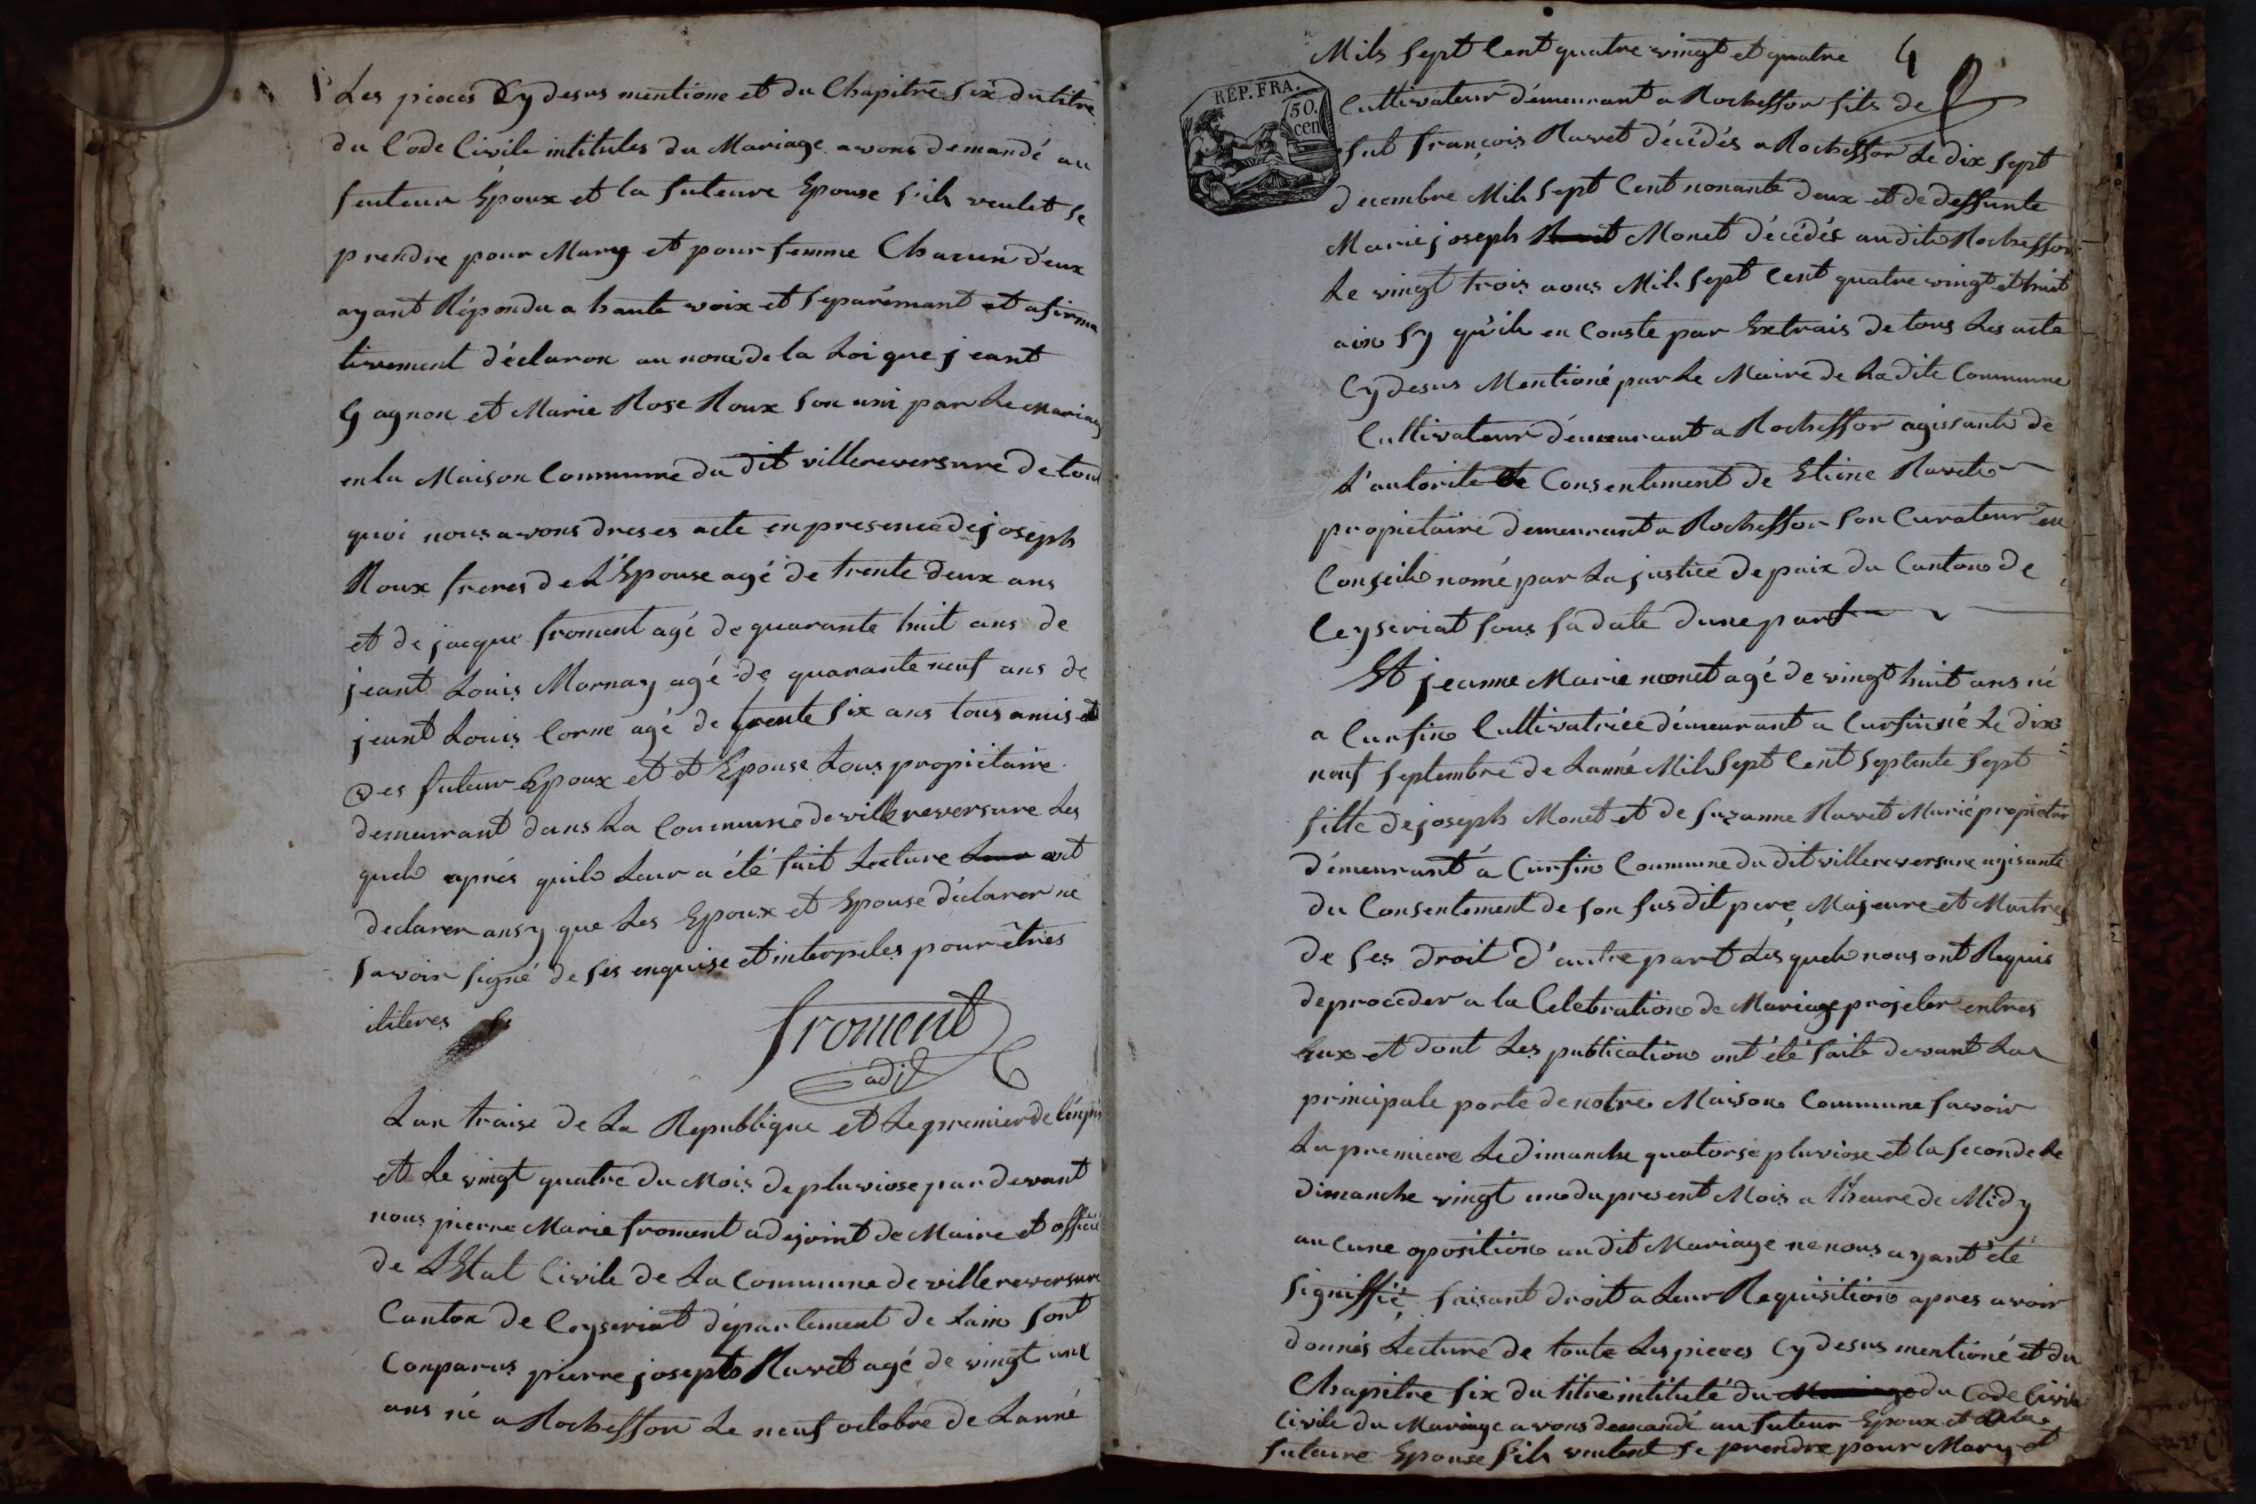 Les pieces Cy desus mentione et du Chapitre six du titre
du Code Civile intitules du Mariage avons demandé au
feuteur Epoux et la futeure Epouse s'ils veulet se
prendre pour Mary et pour femme Chacun d'eux
ayant Répondu a haute voix et separémant et afirma
tivement d'éclaron au nom de la Loi que jeant
Gagnon et Marie Rose Roux son uni par Le Mariag
en la Maison Commune du dit villereversure De tout
quoi nous avons dreses acte en presence de joseph
Roux freres de L'Epouse agé de trente deux ans
et de jacque froment agé de quarante huit ans de
jeant Louis Mornay agé de quarante neuf ans de
jeant Louis Corne agé de trente six ans tous amis et
Des futeur Epoux et et Epouse tous propiétaire
demeurant dans La Commune de villereversure Les
quels aprés quils Leur a été fait Lecture Leur ont
declarer ansy que Les Epoux et Epouse déclarer ne
savoir signé de ses enquise et interpeles pour êtres
iliteres
froment
adj
Lan traise de La Republique et Le premier de
et Le vingt quatre du Mois de pluviose par devant
nous pierre Marie froment adejoint de Maire et officié
de L'Etat Civile de La Commune de villereversure
Canton de Ceyseriat département de Lain sont
Conparus pierre joseph Ravet agé de vingt une
ans né a Rocheffor Le neuf octobre de Lanné
Mils sept Cent quatre vingt et quatre 4
RÉP. FRA.
50.
cen
Cultivateur démeurant a Rocheffor fils de
fut François Ravet décédés a Rocheffor Le dix sept
decembre Mils sept Cent nonante deux et de deffunte
Marie joseph Monet décédés audit Rocheffor
Le vingt trois aous Mils sept Cent quatre vingt et huit
ain sy qu'ils en Conste par Extrais de tous Les acte
Cy desus Mentioné par Le Maire de Ladite Commune
Cultivateur démeurant a Rocheffor agissante de
L'autorite et Consentement de Etiene Ravet
propietaire demeurant a Rocheffor son Curateur
Conseils nomé par La justice de paix du Canton de
Ceyseriat sous sa date dune part
Et jeanne Marie monet agé de vingt huit ans né
a Curfin Cultivatrice démeurant a Curfin né Le dix
neuf septembre de Lanné Mils sept Cent septente sept
fille de joseph Monet et de suzanne Ravet Marié propietair
démeurant a Curfin Commune du dit villereversure agisante
du Consentement de son susdit pere Majeure et Maitres
de ses droit d'autre part Les quels nous ont Requis
de procéder a la Celebration de Mariage projeter entres
Eux et dont Les publication ont été faite devant La
principale porte de notre Maison Commune savoir
La premiere Le dimanche quatorse pluviose et la seconde Le
dimanche vingt un du present Mois a l'heure de Midy
aucune oposition au dit Mariage ne nous ayant été
signiffié faisant droit a Leur Requisition apres avoir
donnés Lecture de toute Les pieces Cy desus mentioné et du
Chapitre six du titre intitulé du Mariage du Code Civile
Civile du Mariage avons demandé au futeur Epoux et a la
futeure Epouse s'ils veulent se prendre pour Mary et